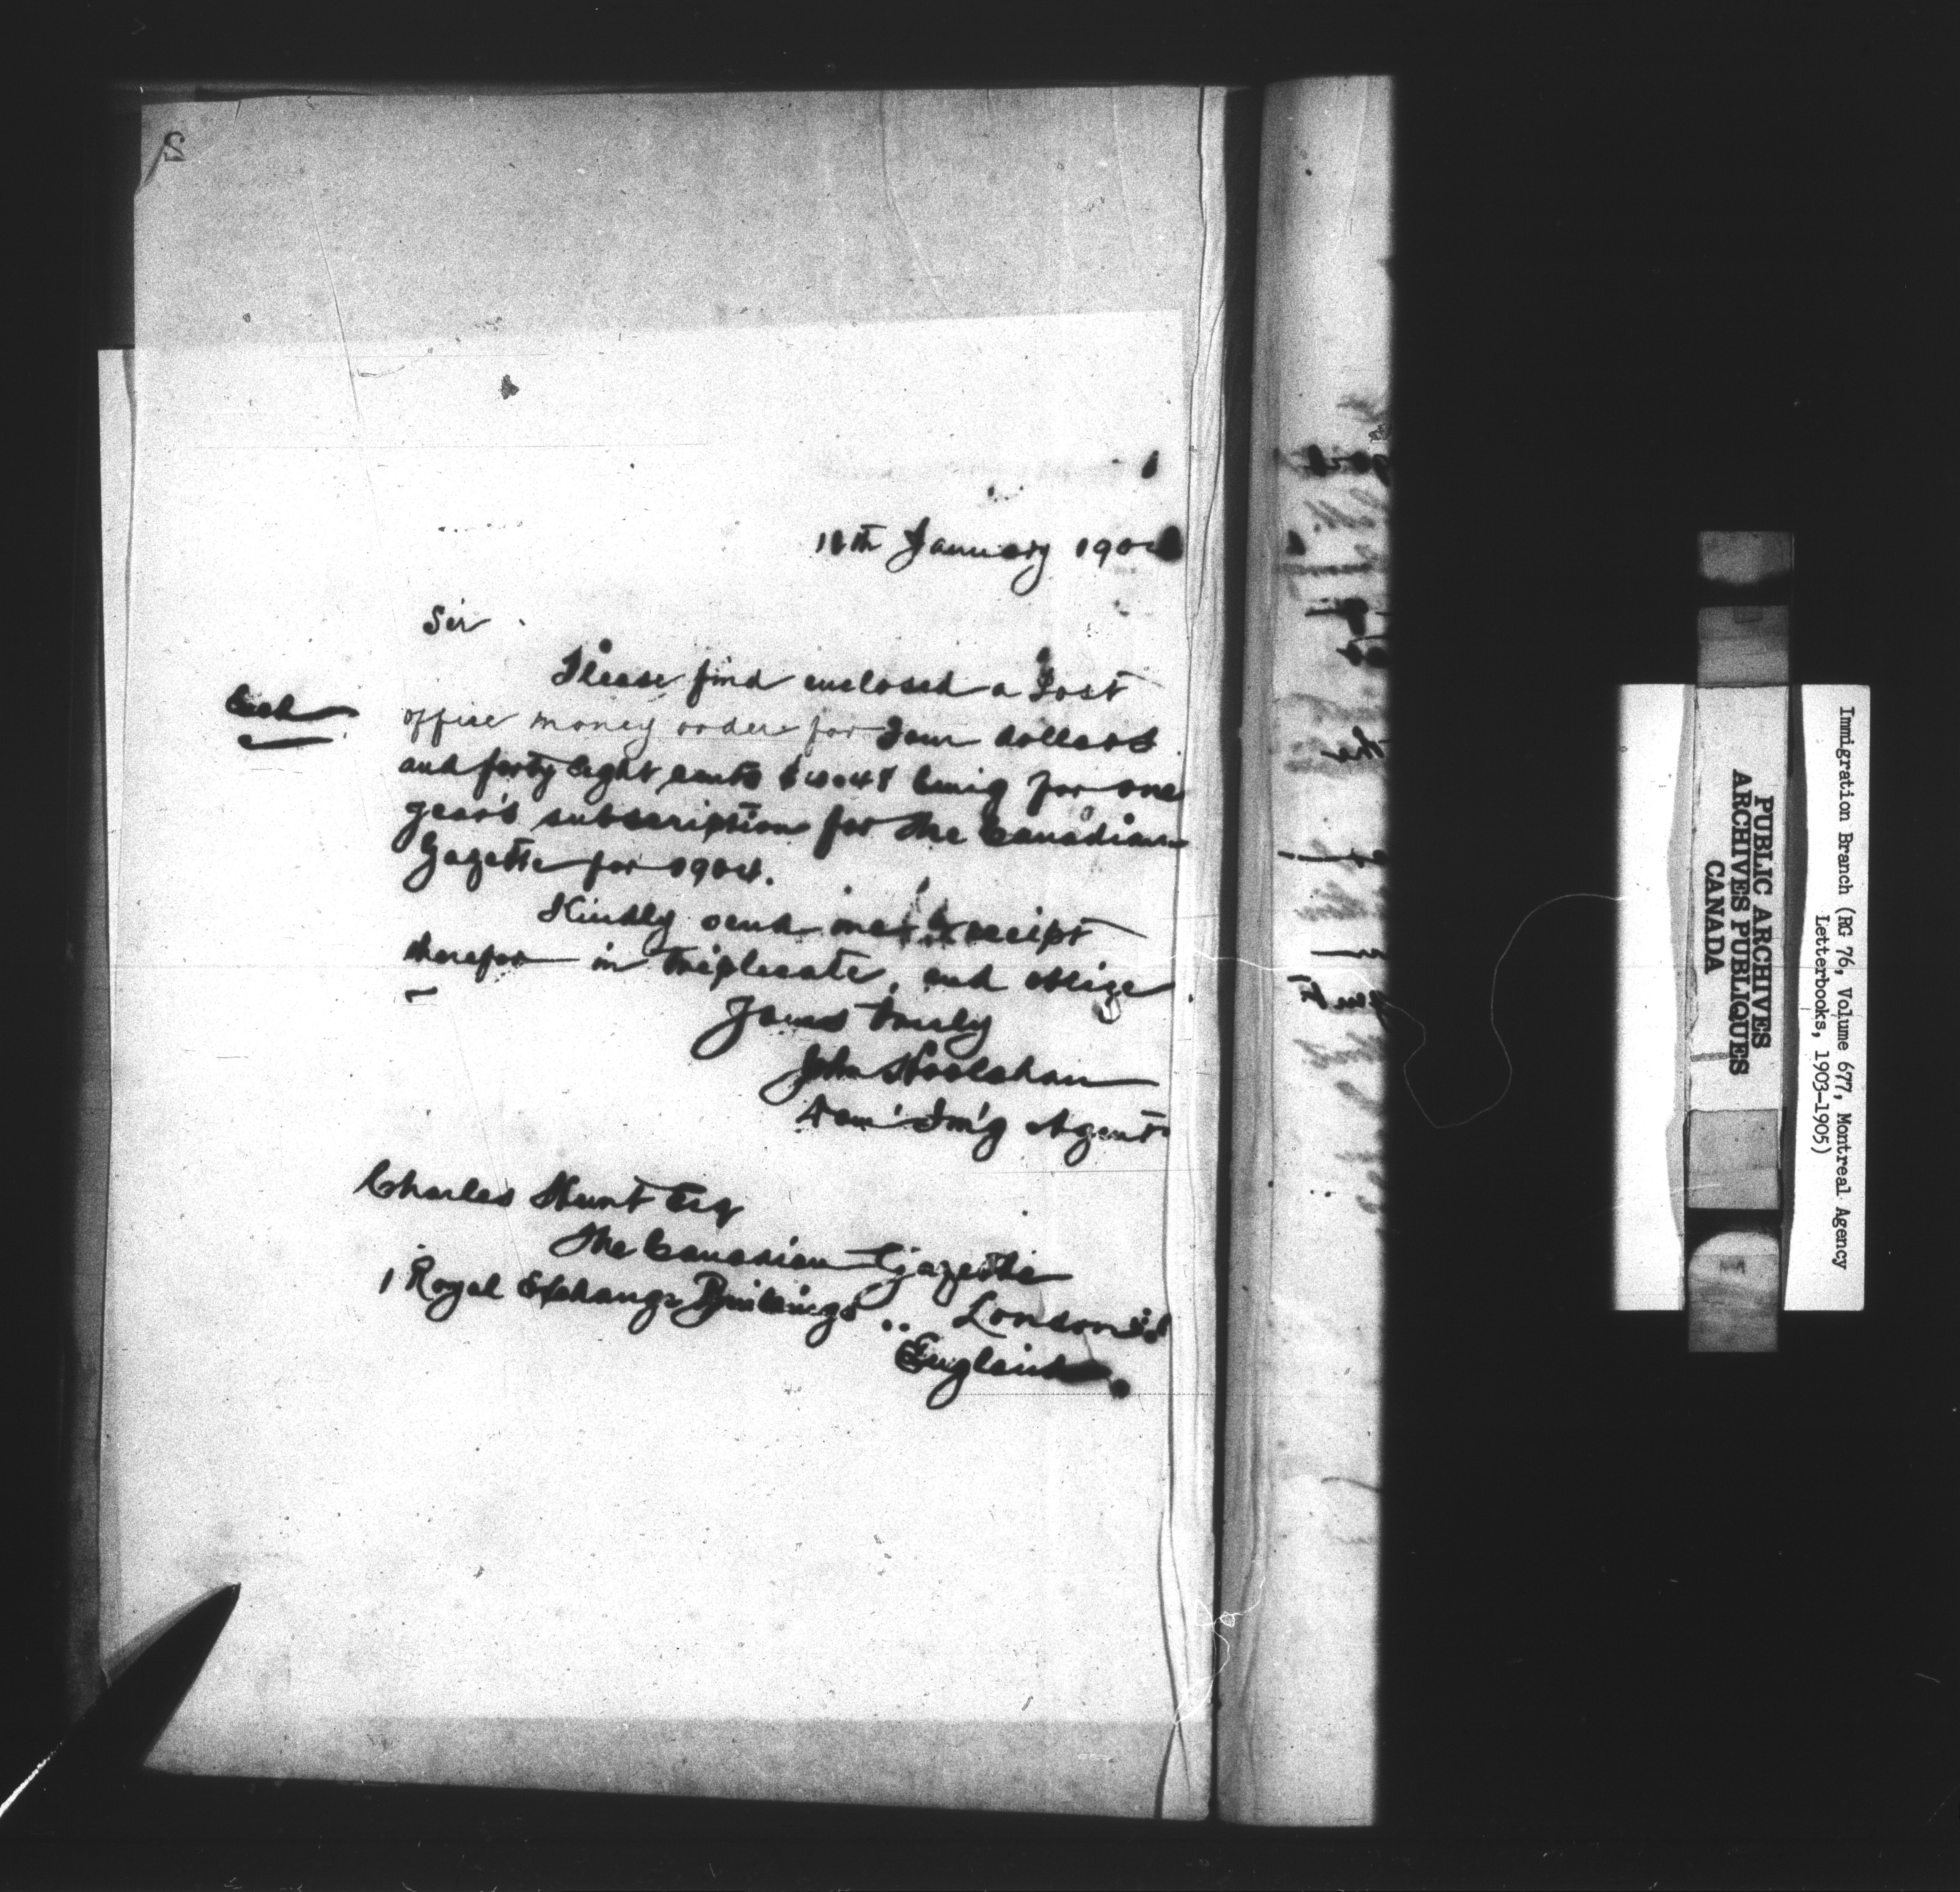 January 1904
Sir
Please find enclosed a Post
office money order for Four dollars
and forty eight cents being for one
year's subscription for The Canadian
Gazette for 1904.
Kindly send me receipt
therefor in triplicate, and oblige
Yours truly
John Hoolahan
Dom' Im'g Agent
Charles Hunt Esq
The Canadian Gazette
1 Royal Exchange Buildings .. London
England
PUBLIC ARCHIVES
ARCHIVES PUBLIQUES
CANADA
Immigration Branch (RG 76, Volume 677, Montreal Agency
Letterbooks, 1903-1905)